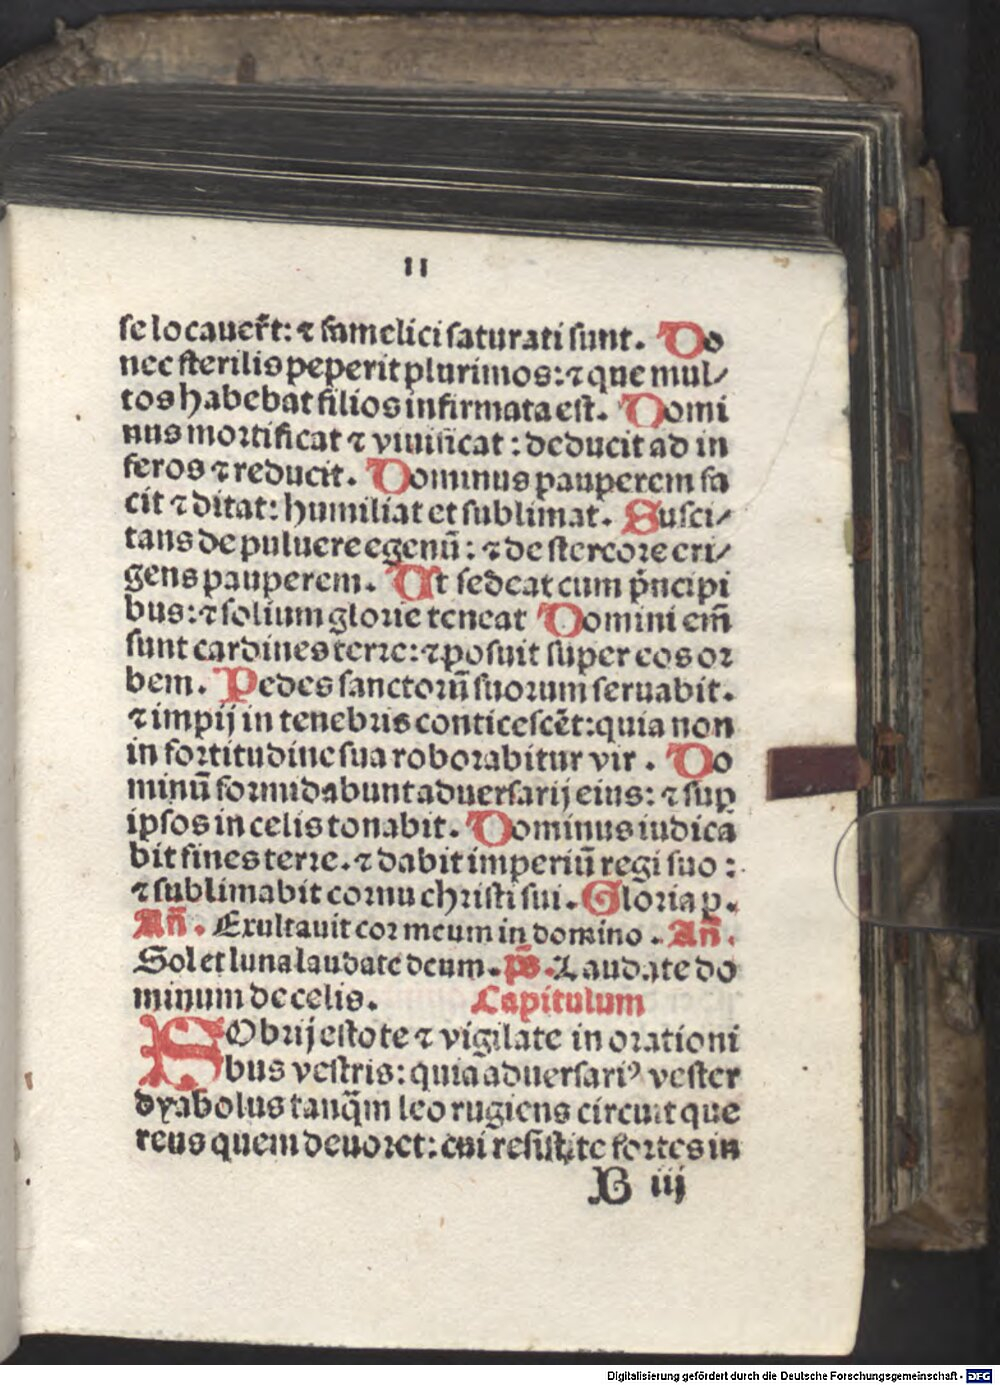 11
se locauer̄t: ⁊ famelici saturati sunt. Do
nec sterilis peperit plurimos: ⁊ que mul⸗
tos habebat filios infirmata est. Domi
nus mortificat ⁊ viuificat: deducit ad in
feros ⁊ reducit. Dominus pauperem fa
cit ⁊ ditat: humiliat et sublimat. Susci⸗
tans de puluere egenū: ⁊ de stercore eri⸗
gens pauperem. Ut sedeat cum p̄ncipi
bus: ⁊ solium glorie teneat Domini em̄
sunt cardines terre: ⁊ posuit super eos or
bem. Pedes sanctorū suorum seruabit.
⁊ impij in tenebris conticescēt: quia non
in fortitudine sua roborabitur vir. Do
minū formidabunt aduersarij eius: ⁊ suꝑ
ipsos in celis tonabit. Dominus iudica
bit fines terre. ⁊ dabit imperiū regi suo:
⁊ sublimabit cornu christi sui. Gloria p.
Añ. Exultauit cor meum in domino. Añ.
Sol et luna laudate deum. p̄s. Laudate do
minum de celis. Capitulum
SObrij estote ⁊ vigilate in orationi
bus vestris: quia aduersariꝰ vester
dyabolus tanq̄m leo rugiens circuit que
rens quem deuoret: cui resistite fortes in
B iij
Digitalisierung gefördert durch die Deutsche Forschungsgemeinschaft - DFG